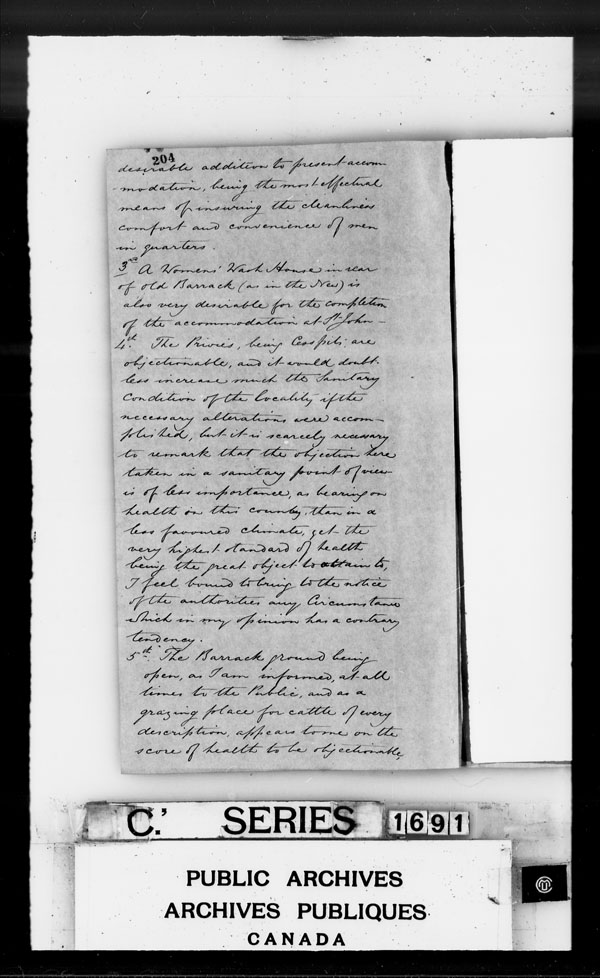 204
desirable addition to present accom-
modation, being the most effectual
means of insuring the cleanliness
comfort and convenience of men
in quarters.
3rd A Womens' Wash House in rear
of old Barrack (as in the New) is
also very desirable for the completion
of the accommodation at St. John -
4th. The Privies, being Cesspits, are
objectionable, and it would doubt-
less increase much the Sanitary
Condition of the locality if the
necessary alterations were accom-
plished, but it is scarcely necessary
to remark that the objection here
taken in a sanitary point of view
is of less importance, as bearing on
health in this country, than in a
less favoured climate, yet the
very highest standard of health
being the great object to attain to,
I feel bound to bring to the notice
of the authorities any Circumstance
which in my opinion has a contrary
tendency.
5th. The Barrack ground being
open, as I am informed, at all
times to the Public, and as a
grazing place for cattle of every
description, appears to me on the
score of health to be objectionable,
C.' SERIES 1691
PUBLIC ARCHIVES
ARCHIVES PUBLIQUES
CANADA